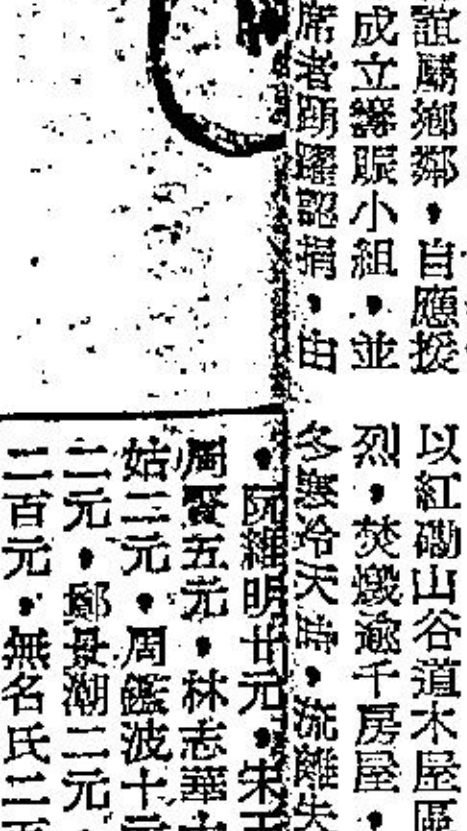 誼屬鄉鄰，自應援
成立籌賑小組，並
席者踴躍認捐，由
以紅磡山谷道木屋區
烈，焚燬逾千房屋，
冬寒冷天時，流離失
，阮維明廿元，宋
周賢五元，林志華
姑二元，周鑑波十元
二元，鄭景潮二元，
二百元，無名氏二百